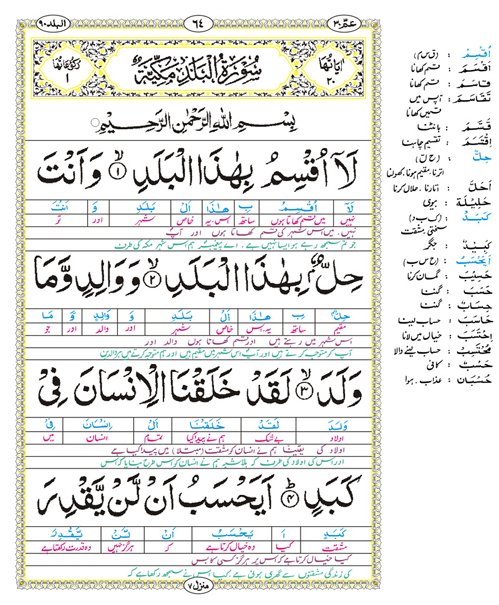 البلد ۹۰
٦٤
عمّ ۳۰
اٰیَاتُهَا ۲۰
سُوْرَةُ الْبَلَدِ مَكِّیَّةٌ
رُكُوْعُهَا ۱
بِسْمِ اللهِ الرَّحْمٰنِ الرَّحِیْمِ
لَاۤ اُقْسِمُ بِهٰذَا الْبَلَدِ ۙ﴿۱﴾ وَ اَنْتَ
لَاۤ اُقْسِمُ بِ هٰذَا الْ بَلَدِ وَ اَنْتَ
نہیں میں قسم کھاتا ہوں ساتھ اس، یہ خاص شہر اور تو
نہیں، میں اس شہر کی قسم کھاتا ہوں اور آپ
حِلٌّۢ بِهٰذَا الْبَلَدِ ۙ﴿۲﴾ وَ وَالِدٍ وَّ مَا
حِلٌّ بِ هٰذَا الْ بَلَدِ وَ وَالِدٍ وَ مَا
مقیم ساتھ یہ، اس خاص شہر اور والد اور جو
اس شہر میں رہتے ہیں اور قسم کھاتا ہوں والد اور
وَلَدَ ۙ﴿۳﴾ لَقَدْ خَلَقْنَا الْاِنْسَانَ فِیْ
وَلَدَ لَقَدْ خَلَقْنَا الْ اِنْسَانَ فِیْ
اولاد بے شک ہم نے پیدا کیا تمام انسان میں
اولاد کی یقیناً ہم نے انسان کو مشقت (مبتلا) میں پیدا کیا ہے
كَبَدٍ ؕ﴿۴﴾ اَیَحْسَبُ اَنْ لَّنْ یَّقْدِرَ
كَبَدٍ اَ یَحْسَبُ اَنْ لَّنْ یَّقْدِرَ
مشقت کیا وہ خیال کرتا ہے کہ ہرگز نہیں وہ قدرت رکھتا ہے
کیا خیال کرتا ہے کہ اس پر ہرگز کسی کا بس
منزل ۷
اُقْسِمُ : (ق س م)
اَقْسَمَ : قسم کھانا
قَاسَمَ : قسم کھانا
تَقَاسَمَ : آپس میں قسمیں کھانا
قَسَّمَ : بانٹنا
حِلٌّ : (ح ل ل)
اَحَلَّ : اتارنا، حلال کرنا
حَلِیْلَةٌ : بیوی
كَبَدٍ : (ك ب د)
سختی، مشقت
كَبِدٌ : جگر
اَیَحْسَبُ : (ح س ب)
حَسِبَ : گمان کرنا
حَسَبَ : گننا
حِسَابٌ : گننا
حَاسَبَ : حساب لینا
اِحْتَسَبَ : خیال میں لانا
مُحْتَسِبٌ : حساب لینے والا
حَسْبُ : کافی
حُسْبَانٌ : عذاب، ہوا